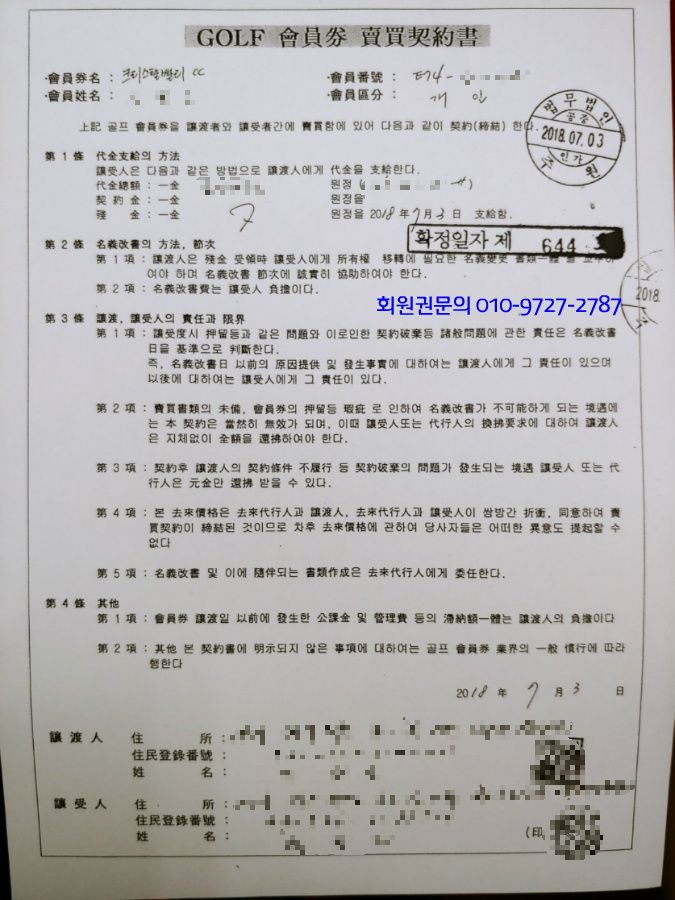 GOLF 會員券 賣買契約書
·會員券名 : 크리스탈밸리 CC ·會員番號 : E74-
·會員姓名 : ·會員區分 : 개 인
上記 골프 會員券을 讓渡者와 讓受者간에 賣買함에 있어 다음과 같이 契約(締結) 한다.
법무법인
공증
2018.07.03
인가
주 원
第 1 條 代金支給의 方法
讓受人은 다음과 같은 방법으로 讓渡人에게 代金을 支給한다.
代金總額 : 一金 원정 (
契 約 金 : 一金 원정을
殘 金 : 一金 원정을 2018 年 7月 3 日 支給함.
확정일자 제 644
第 2 條 名義改書의 方法, 節次
第 1 項 : 讓渡人은 殘金 受領時 讓受人에게 所有權 移轉에 필요한 名義變更 書類一體
여야 하며 名義改書 節次에 誠實히 協助하여야 한다.
第 2 項 : 名義改書費는 讓受人 負擔이다.
회원권문의 010-9727-2787
2018.
第 3 條 讓渡, 讓受人의 責任과 限界
第 1 項 : 讓受度시 押留등과 같은 問題와 이로인한 契約破棄등 諸般問題에 관한 責任은 名義改書
日을 基準으로 判斷한다.
즉, 名義改書日 以前의 原因提供 및 發生事實에 대하여는 讓渡人에게 그 責任이 있으며
以後에 대하여는 讓受人에게 그 責任이 있다.
第 2 項 : 賣買書類의 未備, 會員券의 押留등 瑕疵로 인하여 名義改書가 不可能하게 되는 境遇에
는 本 契約은 當然히 無效가 되며, 이때 讓受人또는 代行人의 換拂要求에 대하여 讓渡人
은 지체없이 全額을 還拂하여야 한다.
第 3 項 : 契約後 讓渡人의 契約條件 不履行 등 契約破棄의 問題가 發生되는 境遇 讓受人 또는 代
行人은 元金만 還拂 받을 수 있다.
第 4 項 : 本 去來價格은 去來代行人과 讓渡人, 去來代行人과 讓受人이 쌍방간 折衝, 同意하여 賣
買契約이 締結된 것이므로 차후 去來價格에 관하여 당사자들은 어떠한 異意도 提起할 수
없다
第 5 項 : 名義改書 및 이에 隨伴되는 書類作成은 去來代行人에게 委任한다.
第 4 條 其他
第 1 項 : 會員券 讓渡日 以前에 發生한 公課金 및 管理費 등의 滯納額一體는 讓渡人의 負擔이다
第 2 項 : 其他 본 契約書에 明示되지 않은 事項에 대하여는 골프 會員券 業界의 一般 慣行에 따라
행한다
2018 年 7 月 3 日
讓 渡 人 住 所 :
住民登錄番號 :
姓 名 :
讓 受 人 住 所 :
住民登錄番號 :
姓 名 : (印